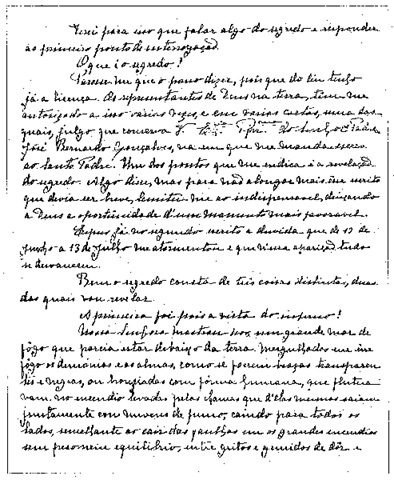 Terei para isso que falar algo do segredo e responder
ao primeiro ponto de interrogação.
O que é o segredo?
Parece-me que o posso dizer, pois que do Céu tenho
já a licença. Os representantes de Deus na terra, tem-me
autorizado a isso várias vezes, e em várias cartas, uma das
quais, julgo que conserva V. do Senhor Padre
José Bernardo Gonçalves, na em que me manda escrever
ao Santo Padre. Um dos pontos que me indica é a revelação
do segredo. Algo disse, mas para não alongar mais esse escrito
que devia ser breve, limitei-me ao indispensável, deixando
a Deus a oportunidade d'um momento mais favorável.
Expus já no segundo escrito a duvida que de 13 de
Junho a 13 de Julho me atormentou e que n'essa aparição tudo
se desvaneceu.
Bem o segredo consta de três coisas distintas, duas
das quais vou revelar.
A primeira foi pois a vista do inferno!
Nossa Senhora mostrou-nos um grande mar de
fôgo que parecia estar debaixo da terra. Mergulhados em êsse
fôgo os demónios e as almas, como se fossem brasas transparen
tes e negras, ou bronziadas com fórma humana, que flutua
vam no incendio levadas pelas chamas que d'elas mesmas saiam
juntamente com nuvens de fumo, caindo para todos os
lados, semelhante ao cair das faulhas em os grandes incendios
sem peso nem equilibrio, entre gritos e gemidos de dôr e